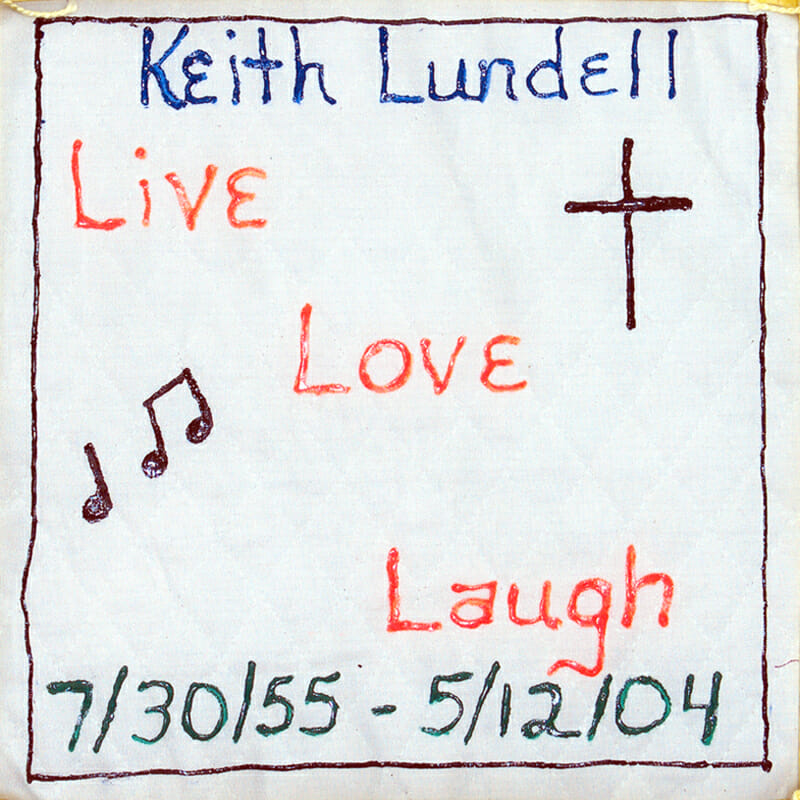 Keith Lundell
Live
Love
Laugh
7/30/55 - 5/12/04